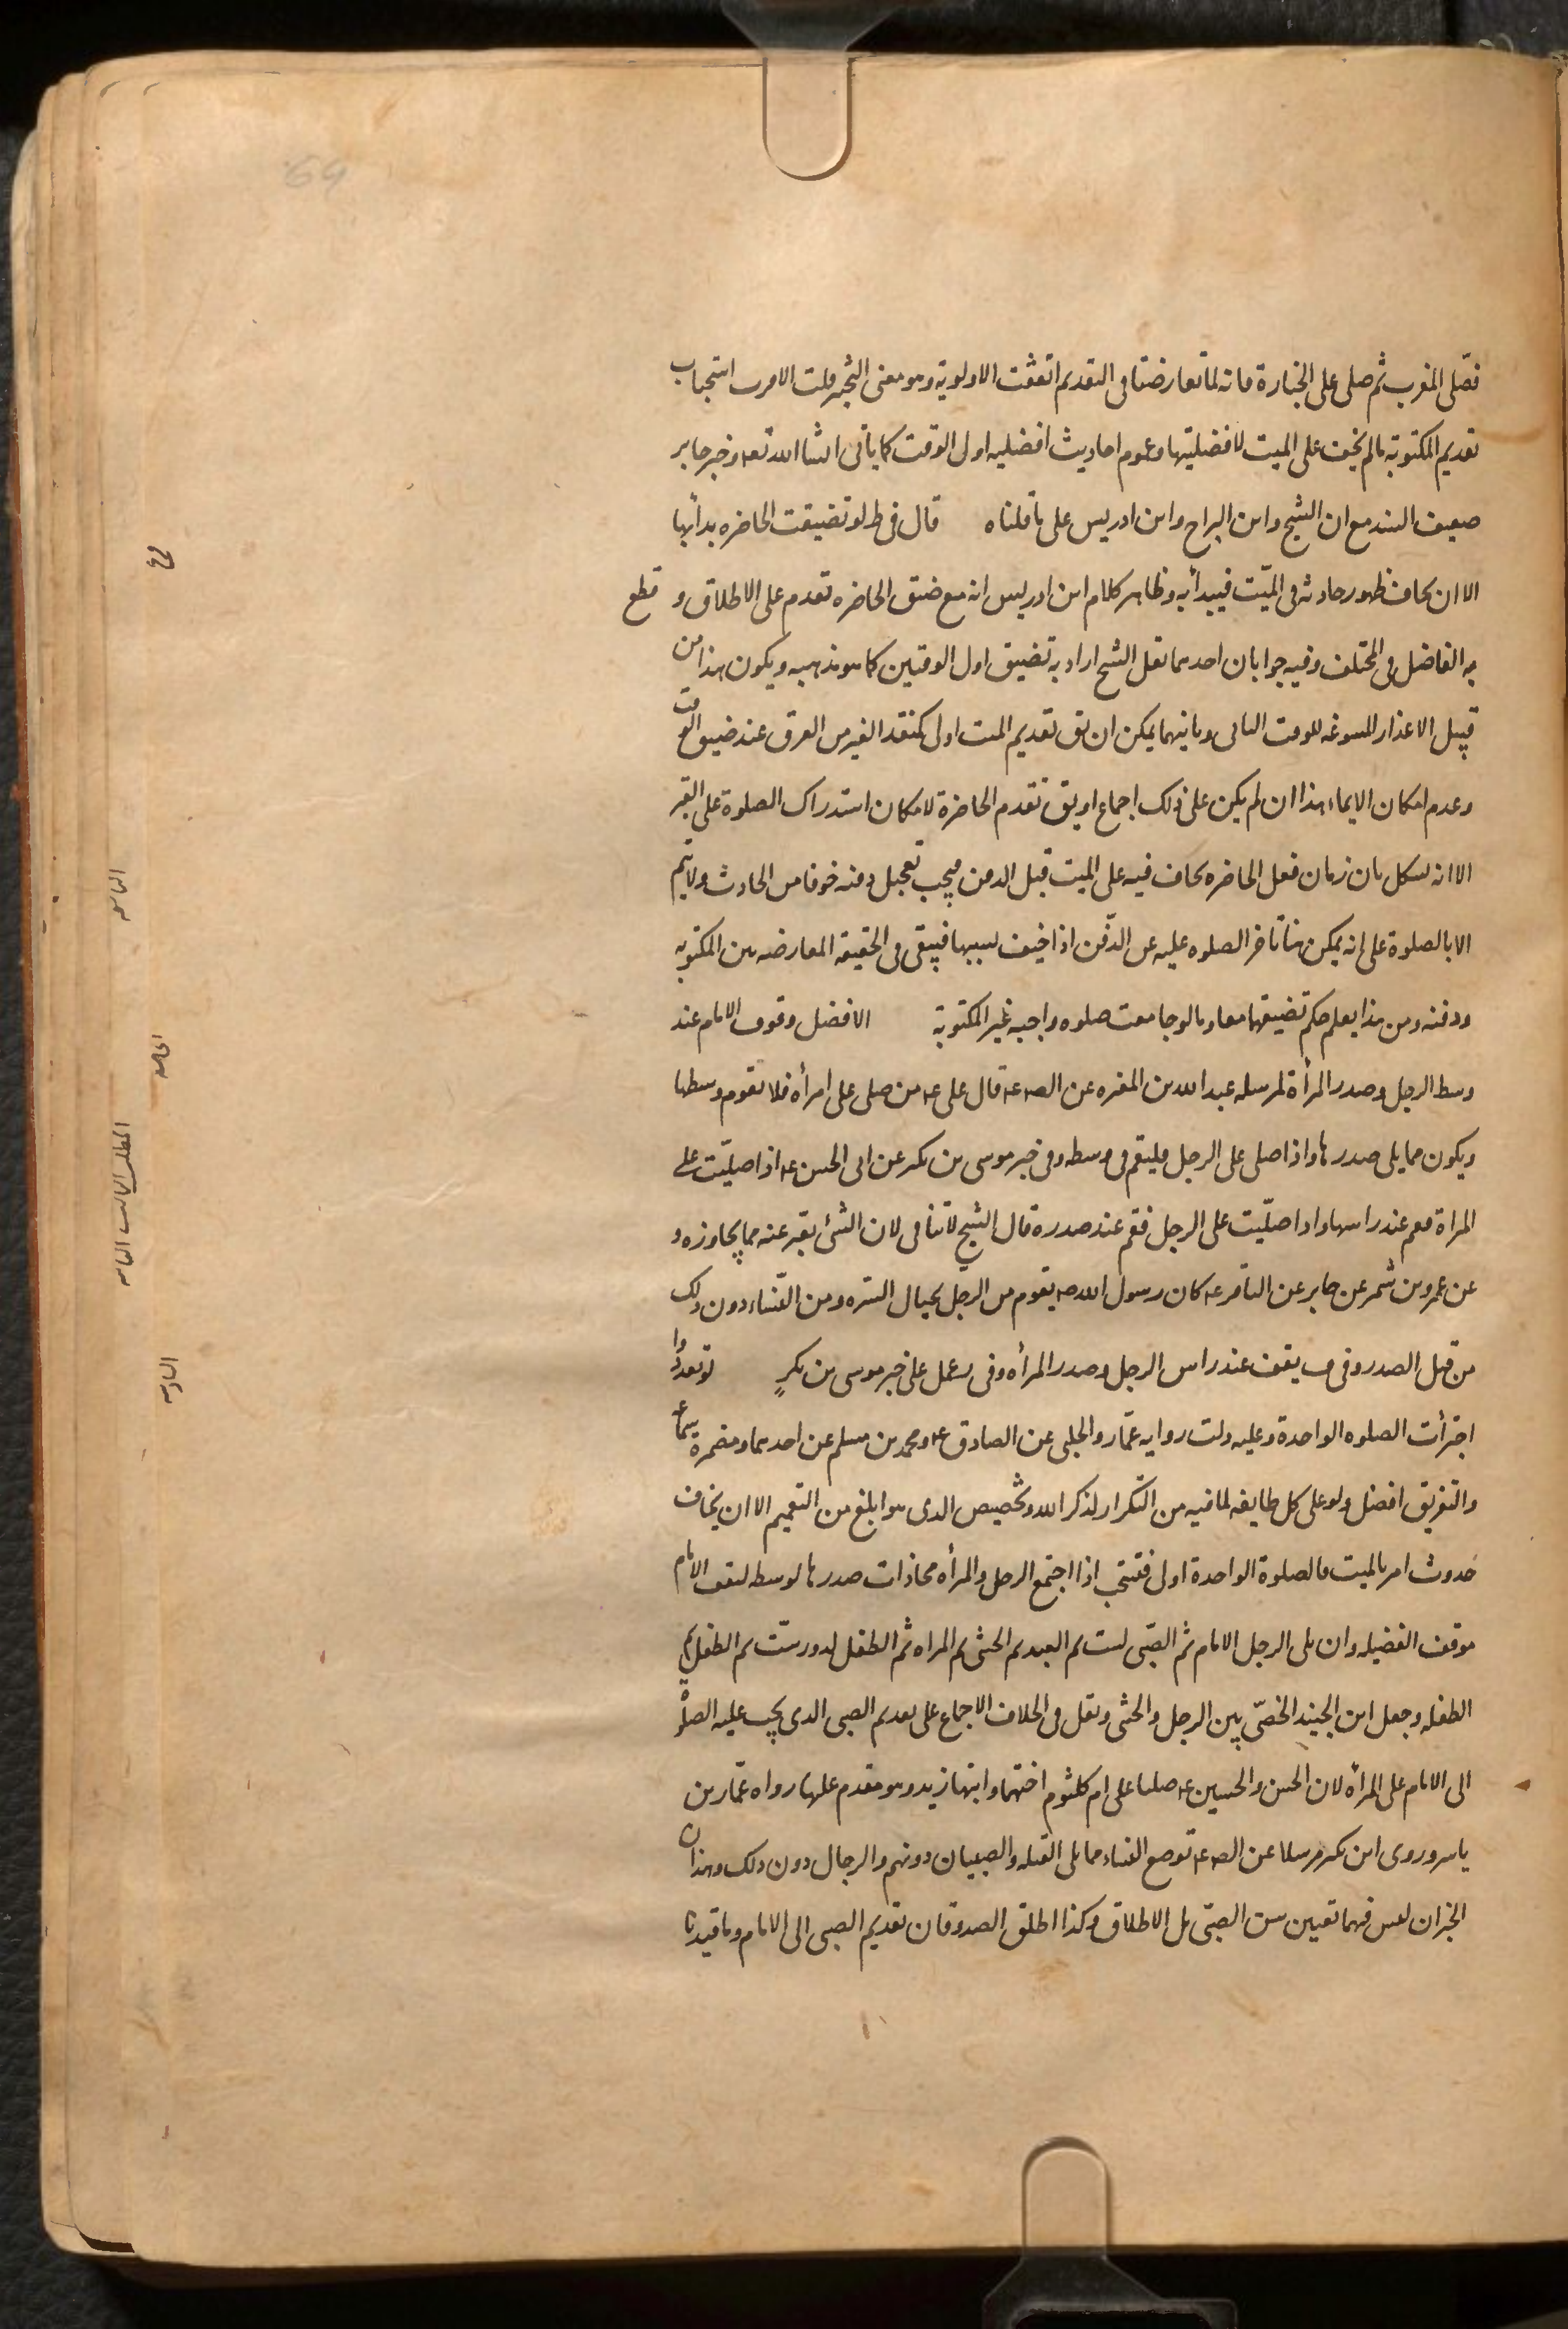 فصلى المغرب ثم صلى على الجنازة فانه لما تعارضتا فى التقديم اتفقت الاولوية وهو معنى التخير قلت الاقرب استحباب
تقديم المكتوبة ما لم يخف على الميت لافضليتها وعموم احاديث افضليه اول الوقت كما ياتى انشا الله تعه وخبر جابر
ضعيف السند مع ان الشيخ وابن البراج وابن ادريس على ما قلناه قال فى ط لو تضيقت الحاضره بدأ بها
الا ان يخاف ظهور حادثه فى الميّت فيبدأ به وظاهر كلام ابن ادريس انه مع ضيق الحاضره تقدم على الاطلاق و قطع
به الفاضل فى المختلف وفيه جوابان احدهما لعل الشيخ اراد به تضيق اول الوقتين كما هو مذهبه ويكون هذا من
قبيل الاعذار المسوغه للوقت الثانى وثانيهما يمكن ان يق تقديم الميت اولى كمنقذ الغير من الغرق عند ضيق الوقت
وعدم امكان الايماء هذا ان لم يكن على ذلك اجماع او يق تقدم الحاضرة لامكان استدراك الصلوة على القبر
الا انه يشكل بان زمان فعل الحاضره يخاف فيه على الميت قبل الدفن فيجب تعجيل دفنه خوفا من الحادث ولا يتم
الا بالصلوة على انه يمكن هنا تاخر الصلوه عليه عن الدّفن اذا خيف بسببها فيبقى فى الحقيقه المعارضه بين المكتوبه
ودفنه ومن هذا يعلم حكم تضيقهما معا وما لو جامعت صلوه واجبه غير المكتوبة الافضل وقوف الامام عند
وسط الرجل وصدر المرأة لمرسله عبد الله بن المغيره عن الصه عه قال على عه من صلى على امرأه فلا يقوم وسطها
ويكون مما يلى صدرها واذا صلى على الرجل فليقم فى وسطه وفى خبر موسى بن بكر عن ابى الحسن عه اذا صليّت على
المراة فقم عند راسها واذا صلّيت على الرجل فقم عند صدره قال الشيخ لا تنافى لان الشئ يعبر عنه مما يجاوزه و
عن عمرو بن شمر عن جابر عن الباقر عه كان رسول الله صه يقوم من الرجل بحيال السره ومن النساء دون ذلك
من قبل الصدر وفى ف يقف عند راس الرجل وصدر المرأه وفى ر عمل على خبر موسى بن بكرٍ لو تعددوا
اجزأت الصلوه الواحدة وعليه دلت روايه عمّار والحلبى عن الصادق عه ومحمد بن مسلم عن احدهما ومضمرة سماعه
والتفريق افضل ولو على كل طايفه لما فيه من التكرار لذكر الله وتخصيص الدى هو ابلغ من التعميم الا ان يخاف
حدوث امر بالميت فالصلوة الواحدة اولى فتستحب اذا اجتمع الرجل والمرأه محاذات صدرها لوسطه ليقف الامام
موقف الفضيله وان يلى الرجل الامام ثم الصّبى لست ثم العبد ثم الخنثى ثم المراه ثم الطفل لدون ستّ ثم الطفل ثم
الطفله وجعل ابن الجنيد الخصّى بين الرجل والخنثى ونقل فى الخلاف الاجماع على تقديم الصبى الدى يجب عليه الصلوة
الى الامام على المرأه لان الحسن والحسين عه صليا على ام كلثوم اختهما وابنها زيد وهو مقدم عليها رواه عمّار بن
ياسر وروى ابن بكير مرسلا عن الصه عه توضع النساء مما يلى القبله والصبيان دونهم والرجال دون ذلك وهذان
الخبران ليس فيهما تعيين سن الصبّى بل الاطلاق وكذا اطلق الصدوقان تقديم الصبى الى الامام وما قيدنا
الخامسه
السادسه